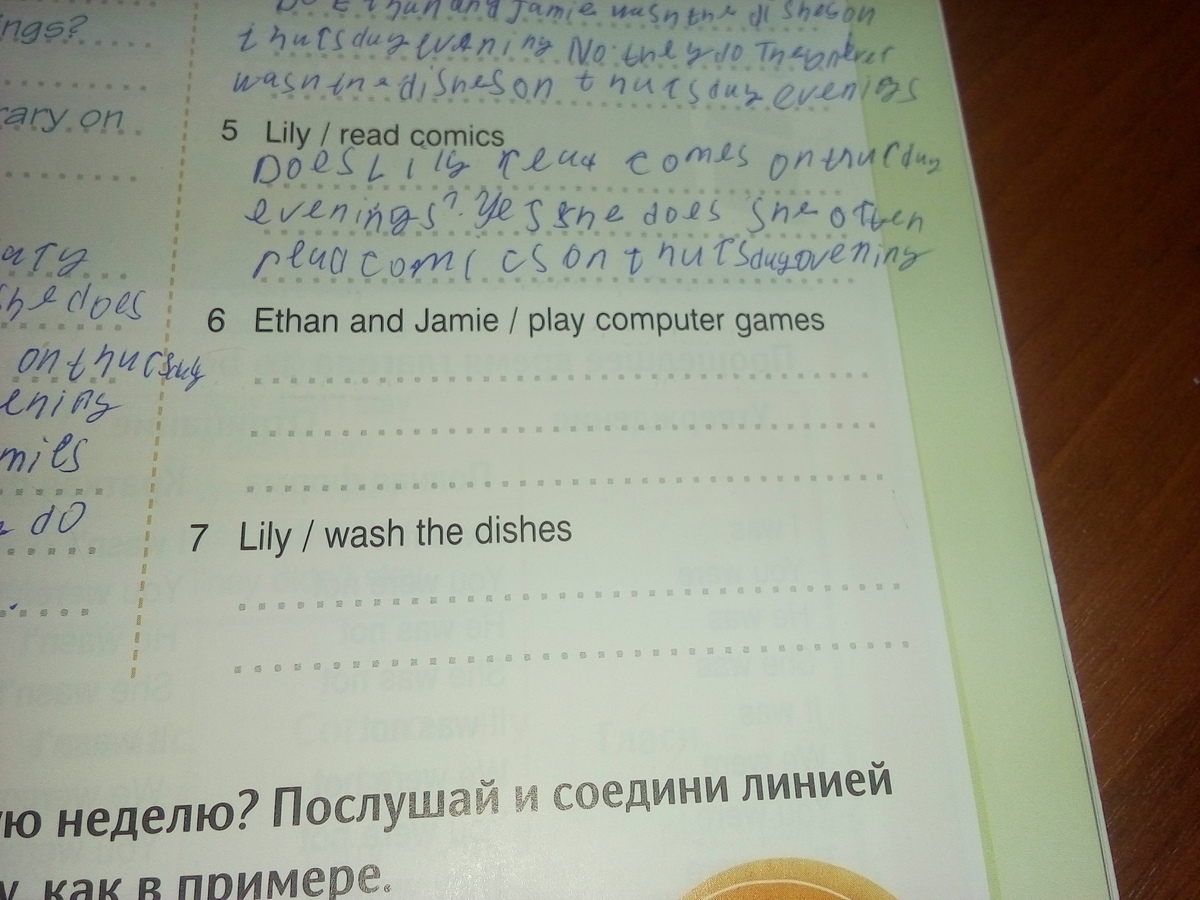 ings?
ary on
Do Ethan and Jamie wash the dishes on
thursday evening No they do They never
wash the dishes on thursday evenings
5 Lily / read comics
Does Lily read comes on thursday
evenings? Yes she does she often
read comics on thursday evening
ary
she does
on thursday
ening
do
6 Ethan and Jamie / play computer games
7 Lily / wash the dishes
ую неделю? Послушай и соедини линией
у, как в примере.